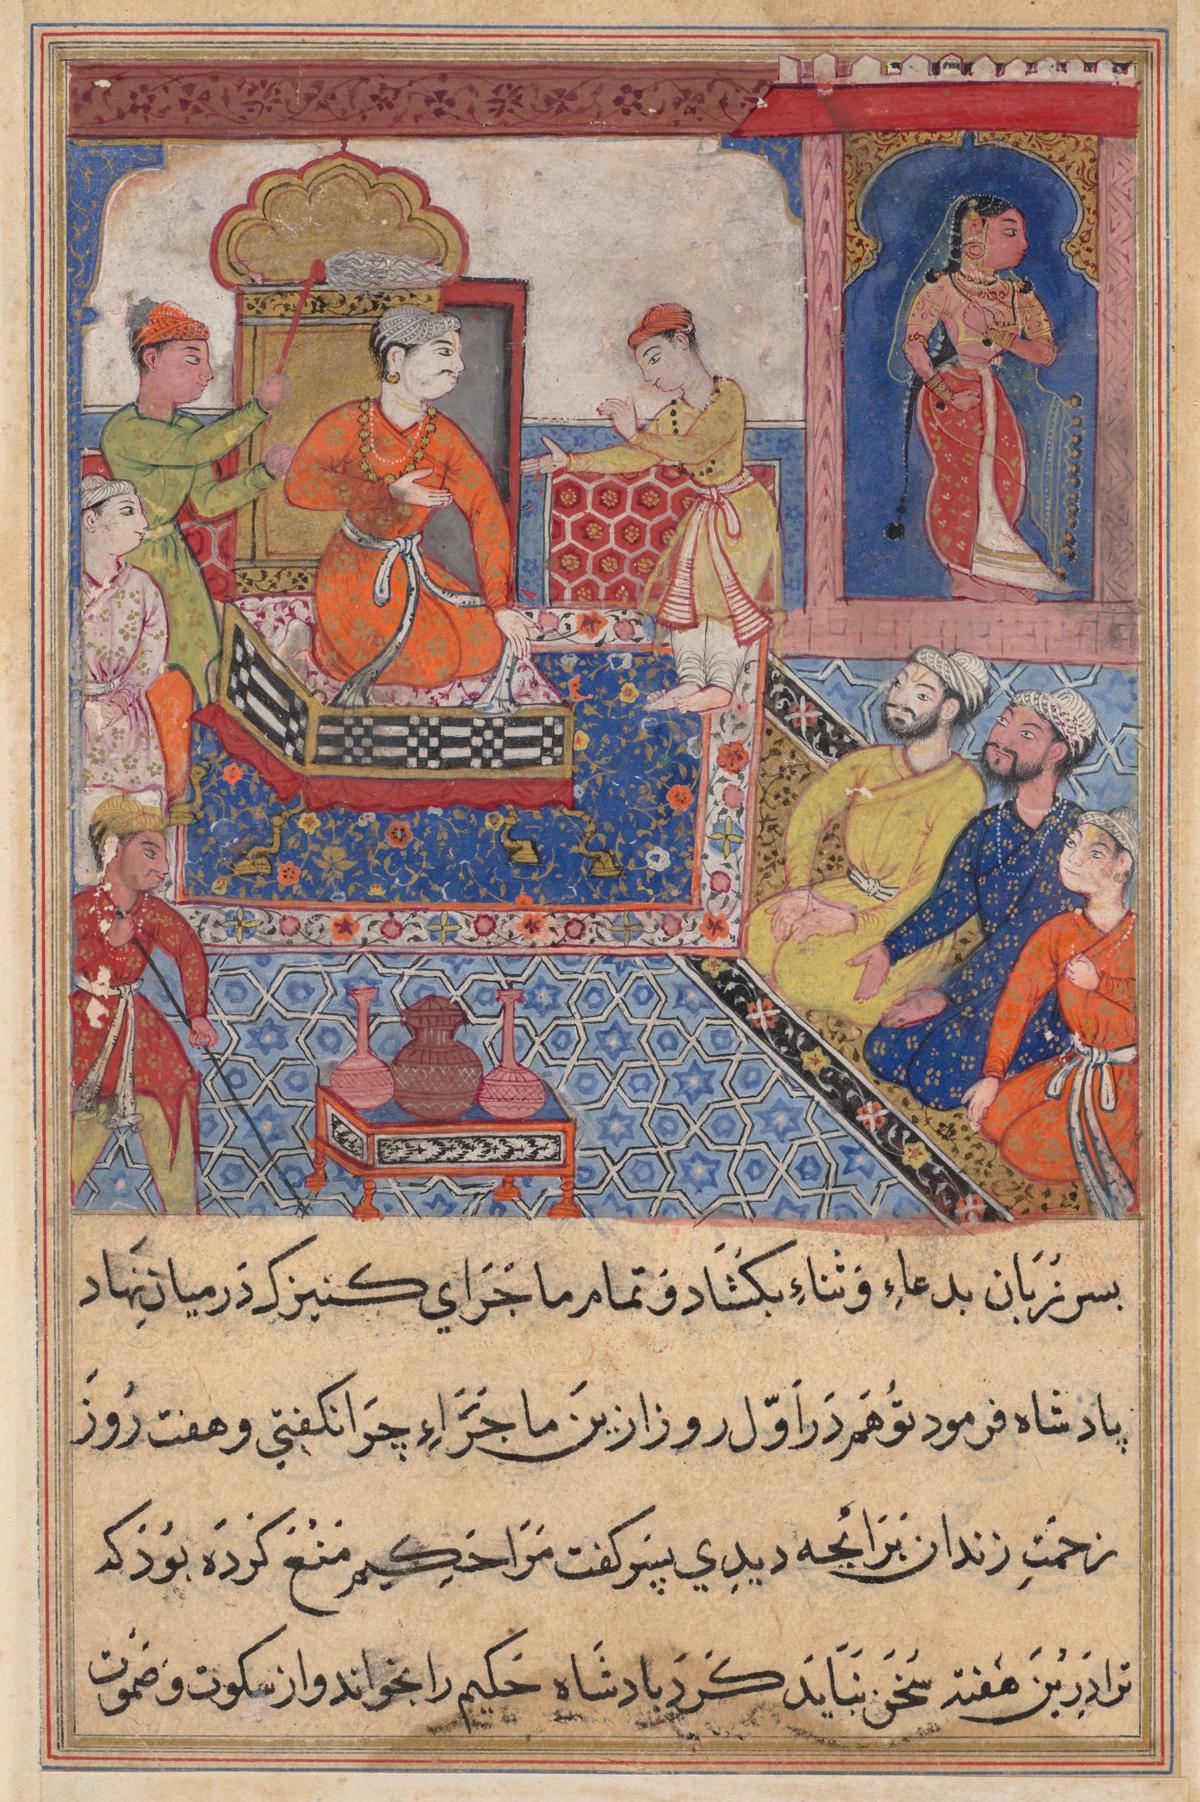 پسر زبان بدعاء و ثناء بکشاد و تمام ماجرای کنیزک در میان نهاد
پادشاه فرمود تو هم در اول روز ازین ماجراء چرا نکفتی و هفت روز
زحمت زندان برا بچه دیدی پسر کفت مرا حکیم منع کرده بود که
ترا درین هفته سخن نباید کرد پادشاه حکیم را بخواند و از سکوت و صموت